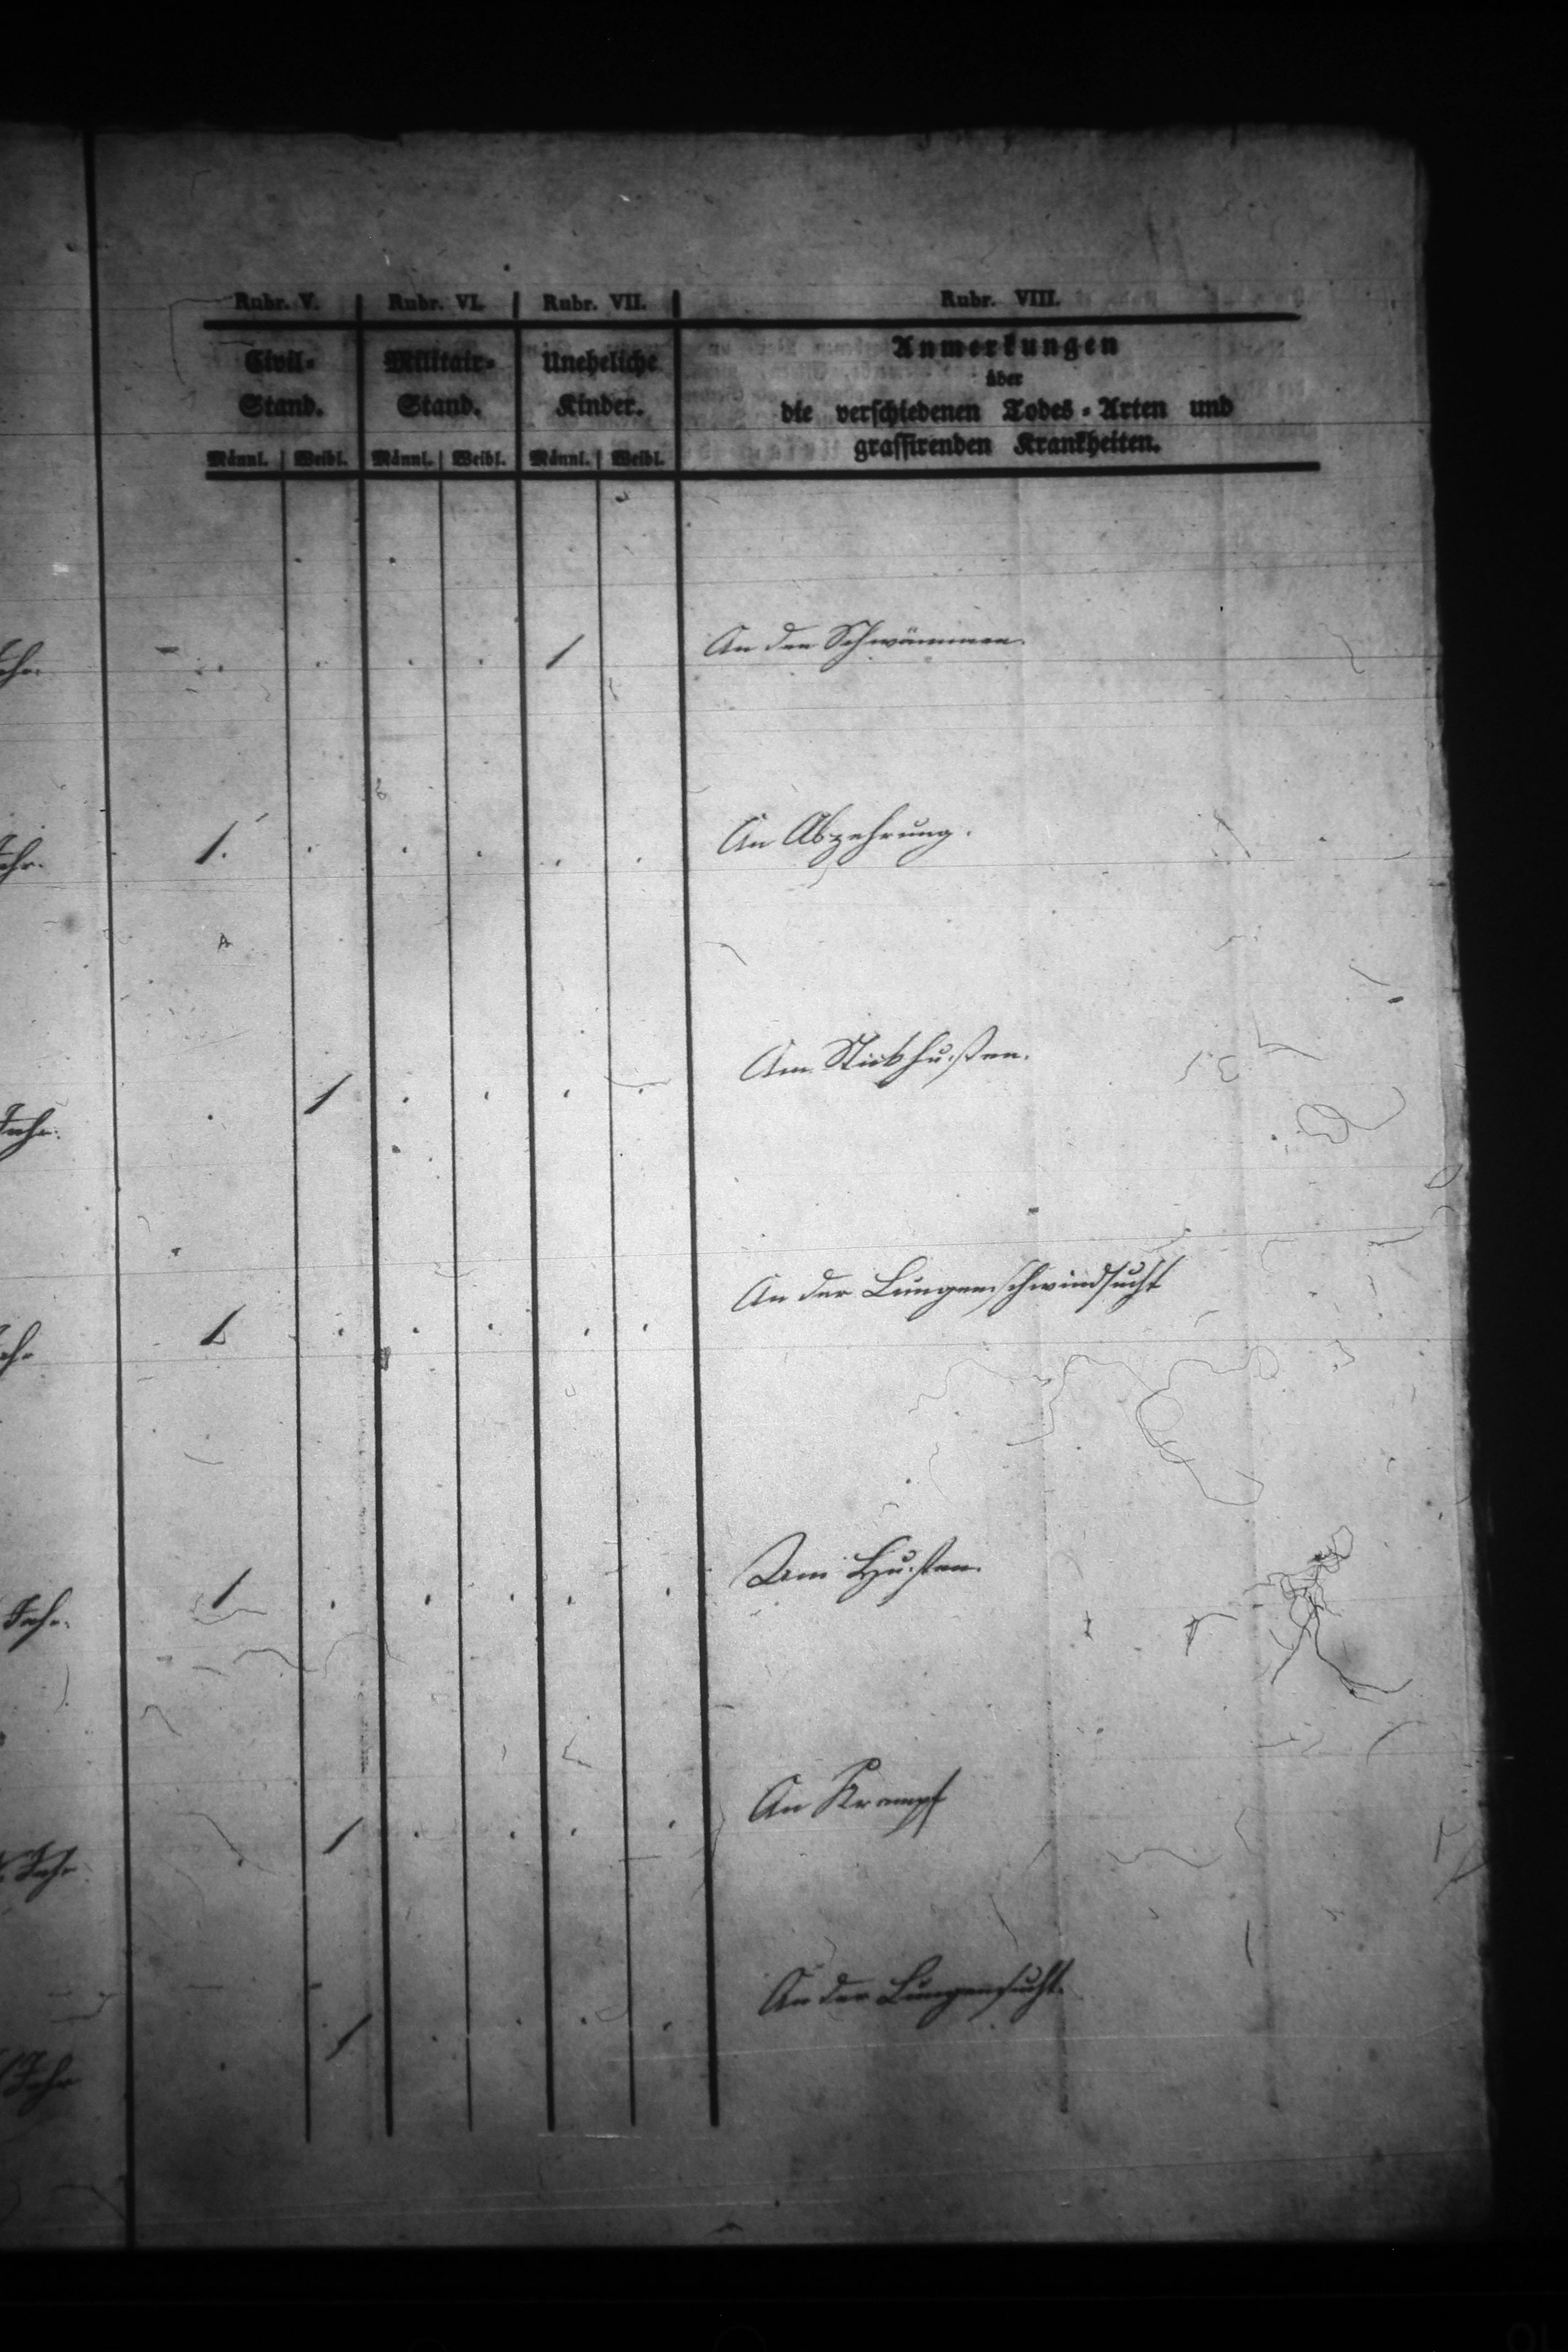 Rubr. V. Rubr. VI. Rubr. VII. Rubr. VIII.
Civil- Militair- Uneheliche Anmerkungen
über
Stand. Stand. Kinder. die verschiedenen Todes-Arten und
grassirenden Krankheiten.
Männl. Weibl. Männl. Weibl. Männl. Weibl.
. . . . 1 An den Schwämmen.
1. . . . . . An Abzehrung.
. 1 . . . . Am Stickhusten.
1 . . . . . An der Lungenschwindsucht
1 . . . . . Am Husten.
1 . . . . An Krampf
1 . . . . An der Lungensucht.